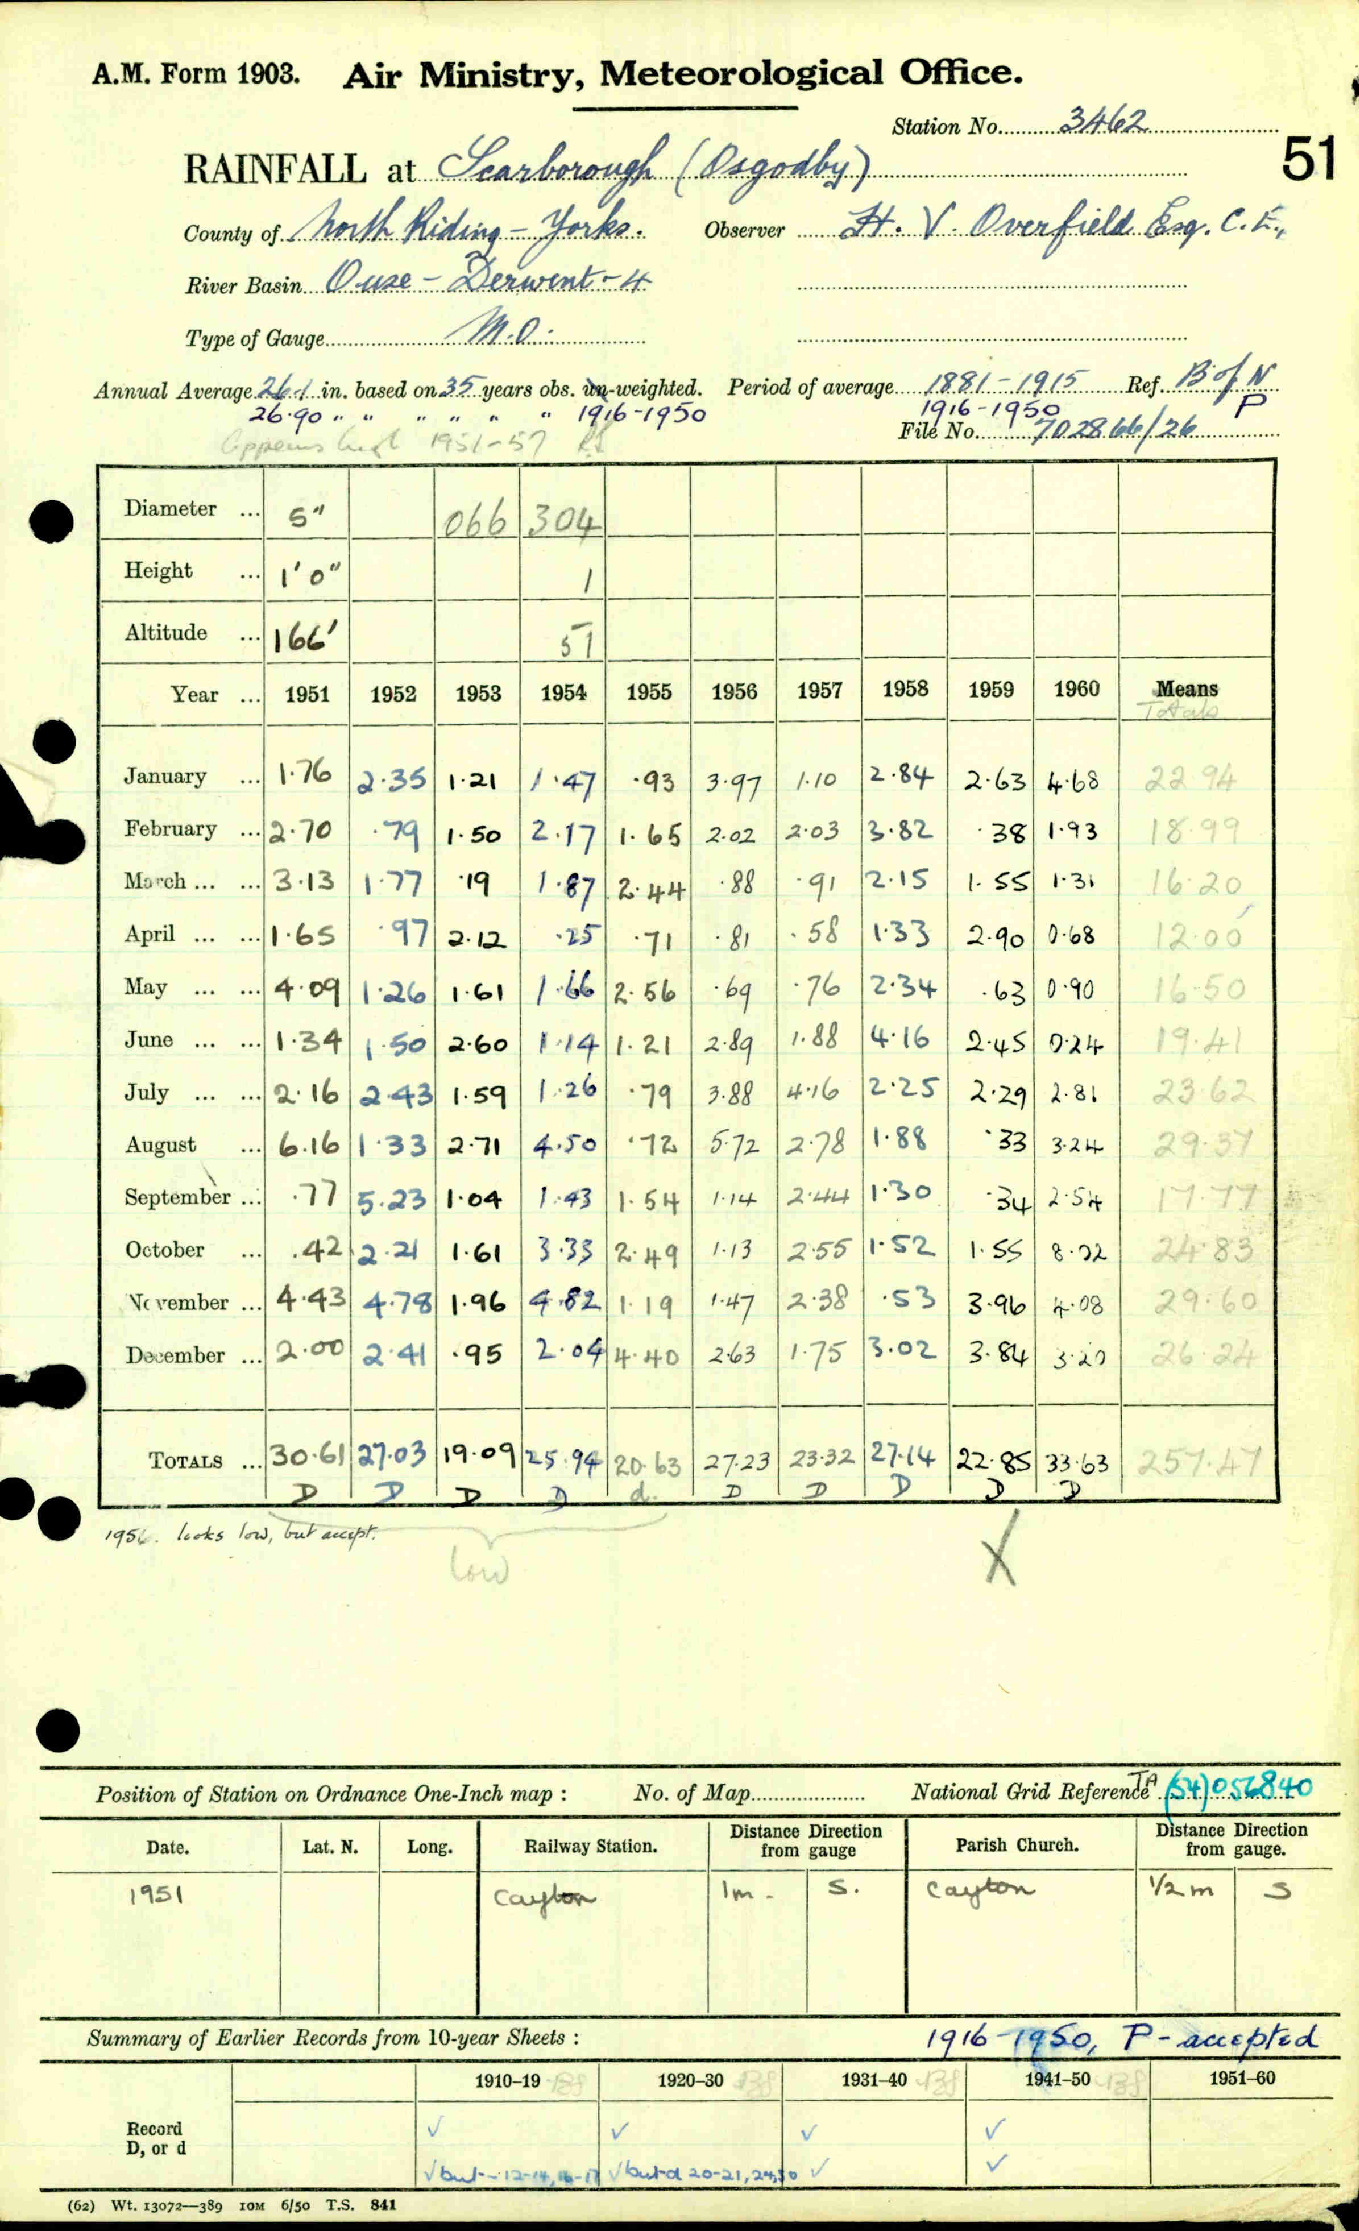 A.M. Form 1903. Air Ministry, Meteorological Office.
Station No. 3462
51
RAINFALL at Scarborough (Osgodby)
County of North Riding - Yorks. Observer H. V. Overfield Esq. C.E.,
River Basin Ouse - Derwent - 4
Type of Gauge M.O.
Annual Average 26.1 in. based on 35 years obs. un-weighted. Period of average 1881-1915 Ref. B of N
26.90 " " " " " " 1916-1950 1916-1950 P
File No. 702866/26
Appears high 1951-57
Diameter ... 5" 066 304
Height ... 1' 0" 1
Altitude ... 166' 51
Year ... 1951 1952 1953 1954 1955 1956 1957 1958 1959 1960 Means
Totals
January ... 1.76 2.35 1.21 1.47 .93 3.97 1.10 2.84 2.63 4.68 22.94
February ... 2.70 .79 1.50 2.17 1.65 2.02 2.03 3.82 .38 1.93 18.99
March ... ... 3.13 1.77 .19 1.87 2.44 .88 .91 2.15 1.55 1.31 16.20
April ... ... 1.65 .97 2.12 .25 .71 .81 .58 1.33 2.90 0.68 12.00
May ... ... 4.09 1.26 1.61 1.66 2.56 .69 .76 2.34 .63 0.90 16.50
June ... ... 1.34 1.50 2.60 1.14 1.21 2.89 1.88 4.16 2.45 0.24 19.41
July ... ... 2.16 2.43 1.59 1.26 .79 3.88 4.16 2.25 2.29 2.81 23.62
August ... 6.16 1.33 2.71 4.50 .72 5.72 2.78 1.88 .33 3.24 29.37
September ... .77 5.23 1.04 1.43 1.54 1.14 2.44 1.30 .34 2.54 17.77
October ... .42 2.21 1.61 3.33 2.49 1.13 2.55 1.52 1.55 8.02 24.83
November ... 4.43 4.78 1.96 4.82 1.19 1.47 2.38 .53 3.96 4.08 29.60
December ... 2.00 2.41 .95 2.04 4.40 2.63 1.75 3.02 3.84 3.20 26.24
TOTALS ... 30.61 27.03 19.09 25.94 20.63 27.23 23.32 27.14 22.85 33.63 257.47
D D D D d. D D D D D
1956. looks low, but accept.
low
X
Position of Station on Ordnance One-Inch map : No. of Map National Grid Reference TA (54) 056840
Date. Lat. N. Long. Railway Station. Distance from gauge Direction Parish Church. Distance from gauge. Direction
1951 Cayton 1m. S. Cayton 1/2 m S
Summary of Earlier Records from 10-year Sheets : 1916-1950, P - accepted
1910–19 1920–30 1931–40 1941–50 1951–60
Record ✓ ✓ ✓ ✓
D, or d ✓ but - 12-14, 16-17 ✓ but d 20-21, 24,30 ✓ ✓
(62) Wt. 13072—389 10M 6/50 T.S. 841